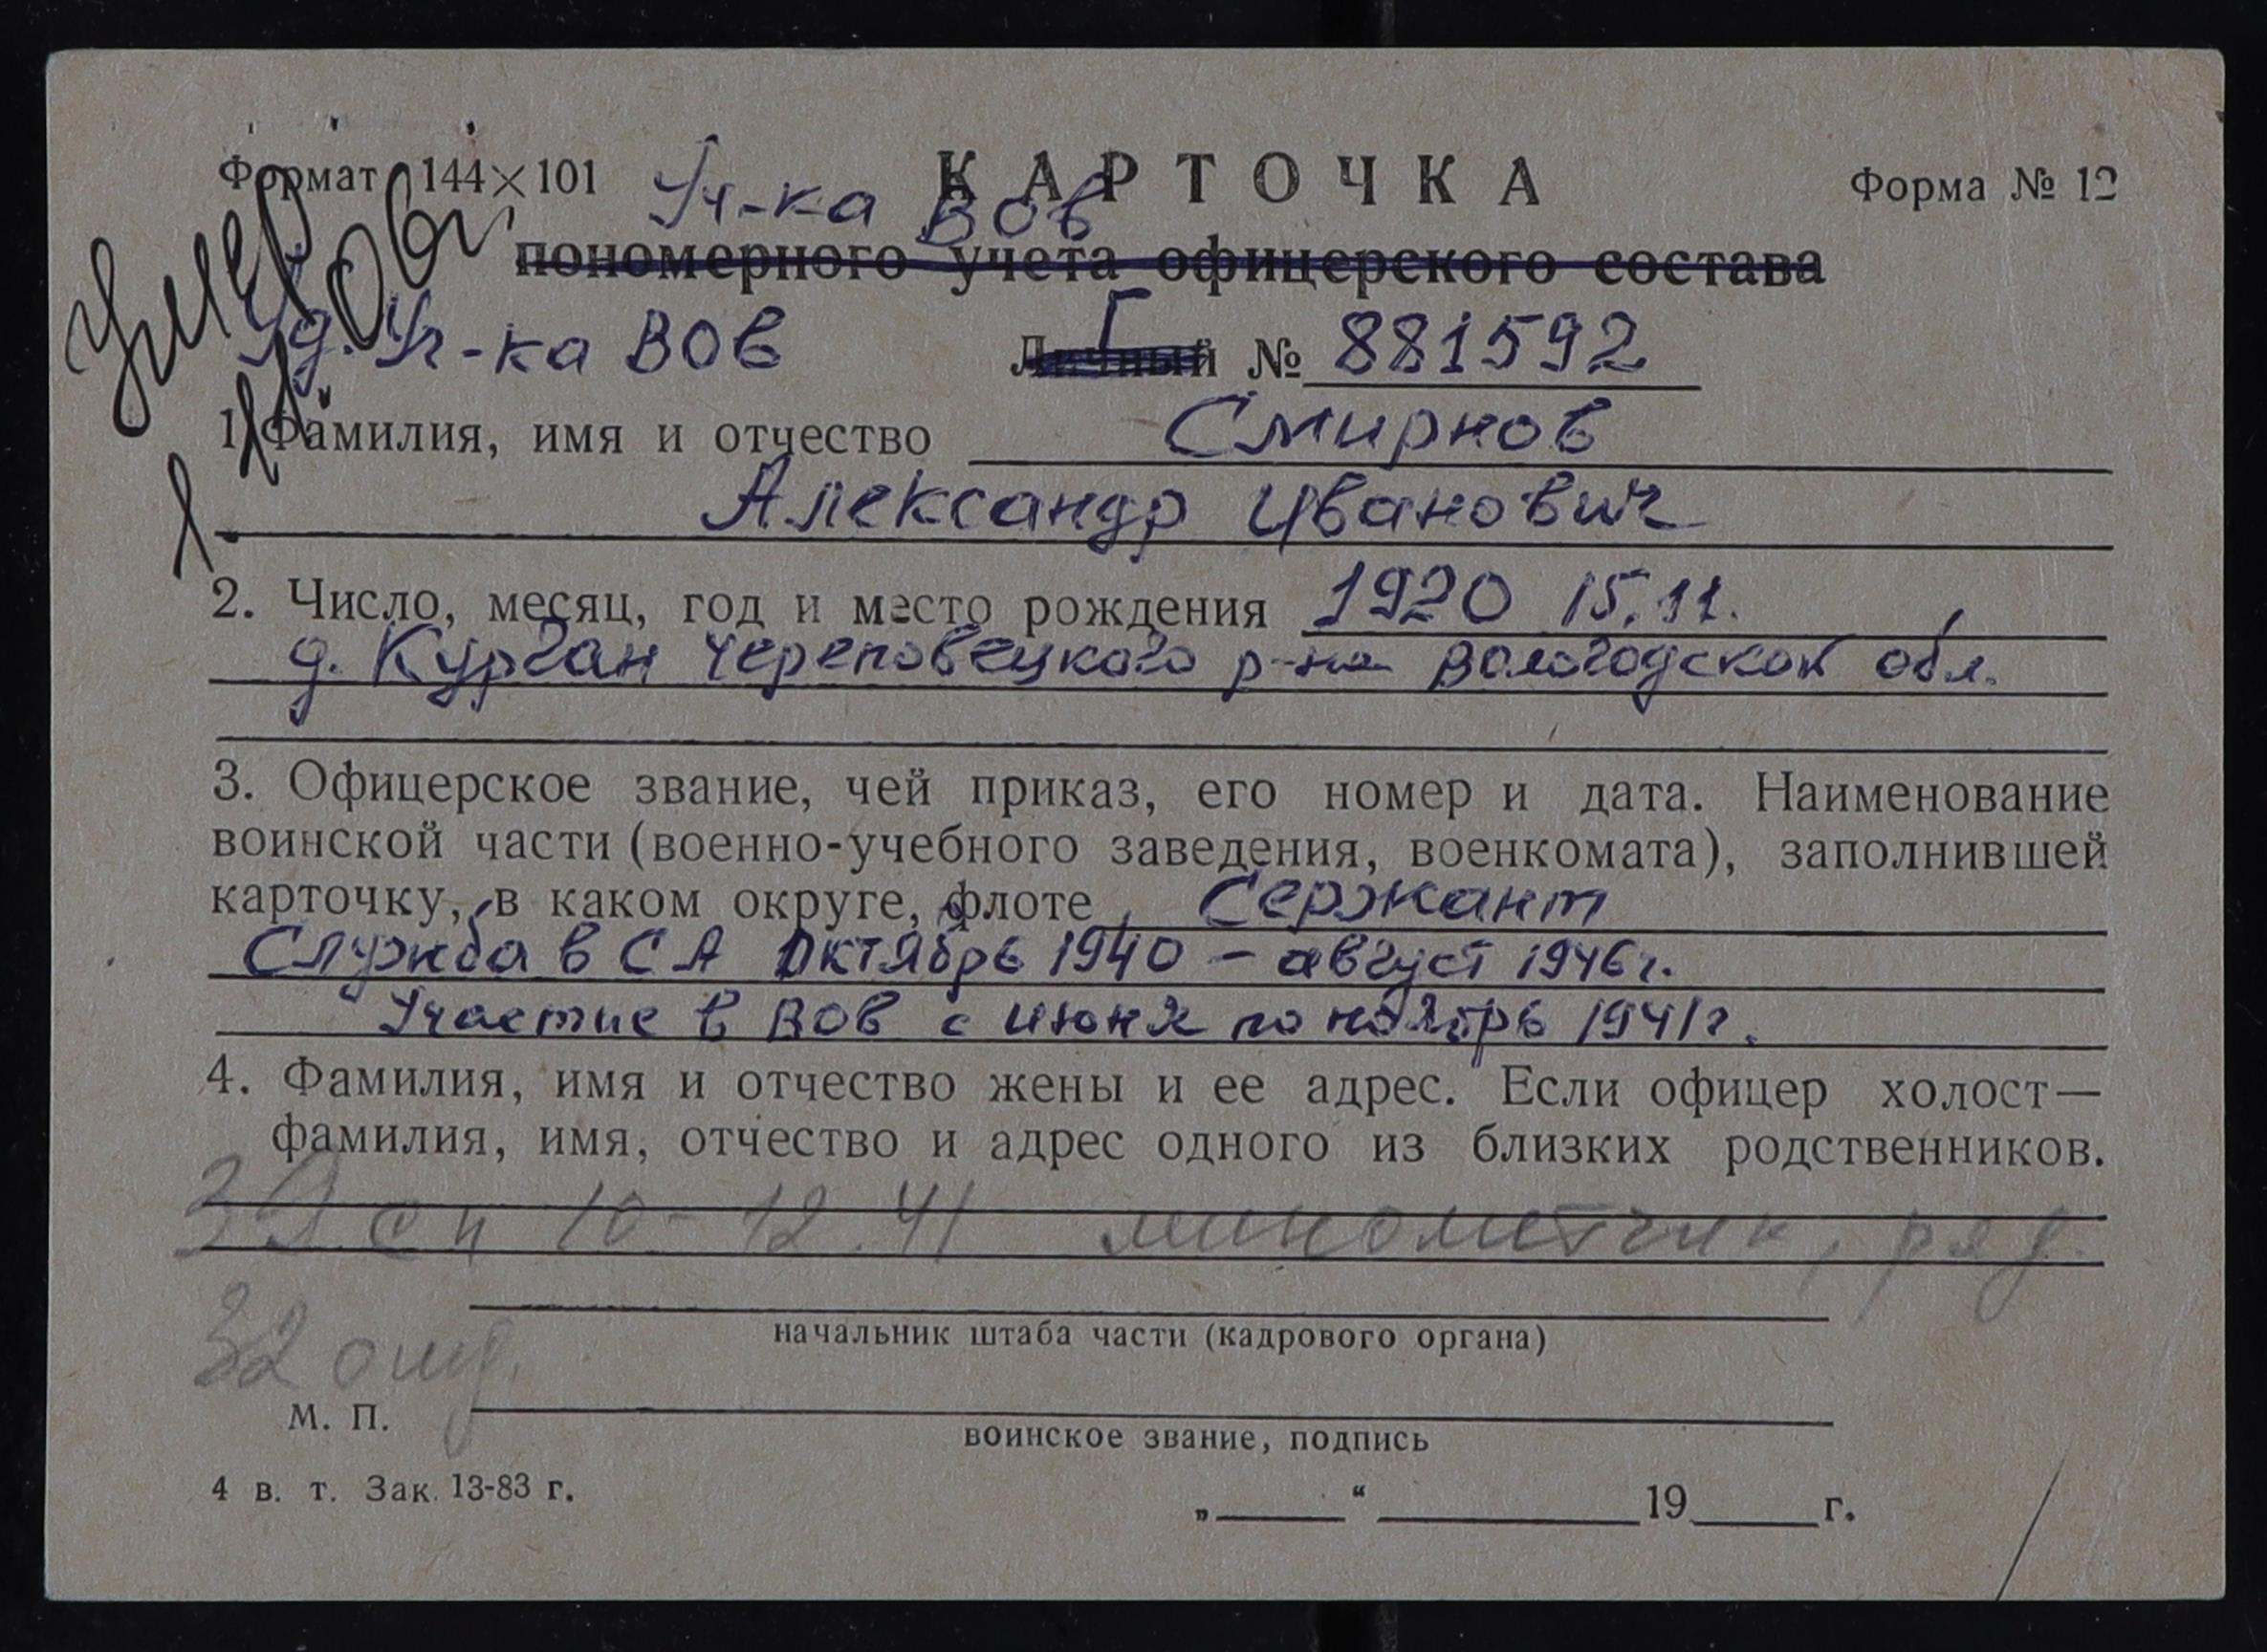 Формат 144×101 Уч-ка ВОВ КАРТОЧКА Форма № 12
пономерного учета офицерского состава
Умер
Уд. Уч-ка ВОВ Личный Г № 881592
1. Фамилия, имя и отчество Смирнов
Александр Иванович
2. Число, месяц, год и место рождения 1920 15.11.
д. Курган Череповецкого р-на Вологодской обл.
3. Офицерское звание, чей приказ, его номер и дата. Наименование
воинской части (военно-учебного заведения, военкомата), заполнившей
карточку, в каком округе, флоте Сержант
Служба в СА октябрь 1940 – август 1946 г.
Участие в ВОВ с июня по ноябрь 1941 г.
4. Фамилия, имя и отчество жены и ее адрес. Если офицер холост—
фамилия, имя, отчество и адрес одного из близких родственников.
10-12.41 минометчик, ряд.
начальник штаба части (кадрового органа)
32
М. П.
воинское звание, подпись
4 в. т. Зак. 13-83 г.
„ “ 19 г.